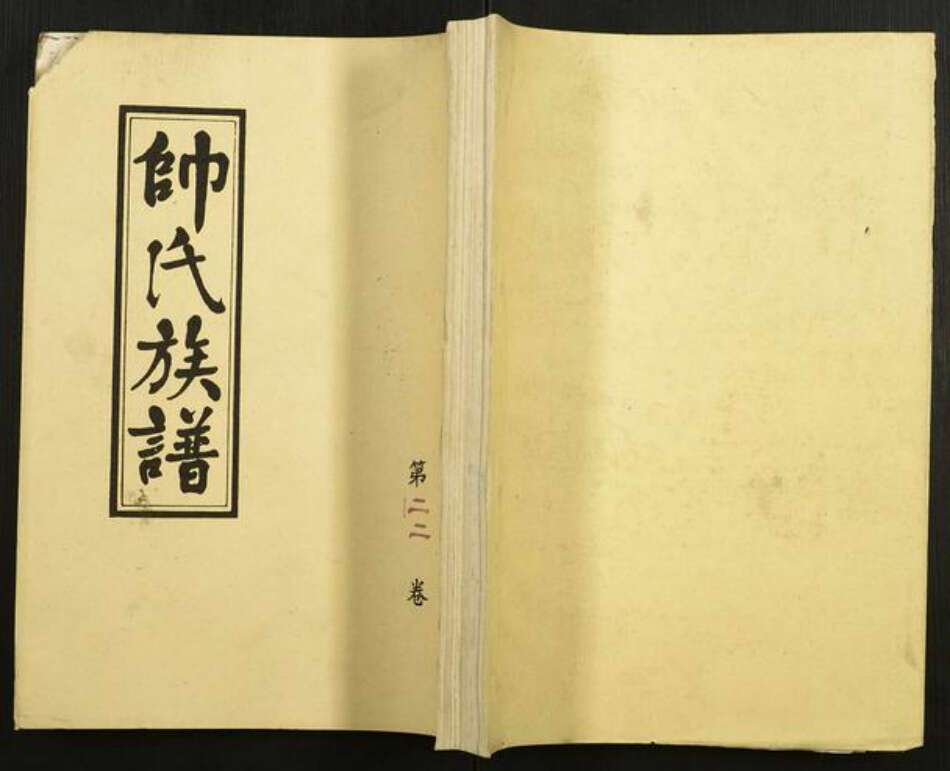 帥氏族譜
第二二卷